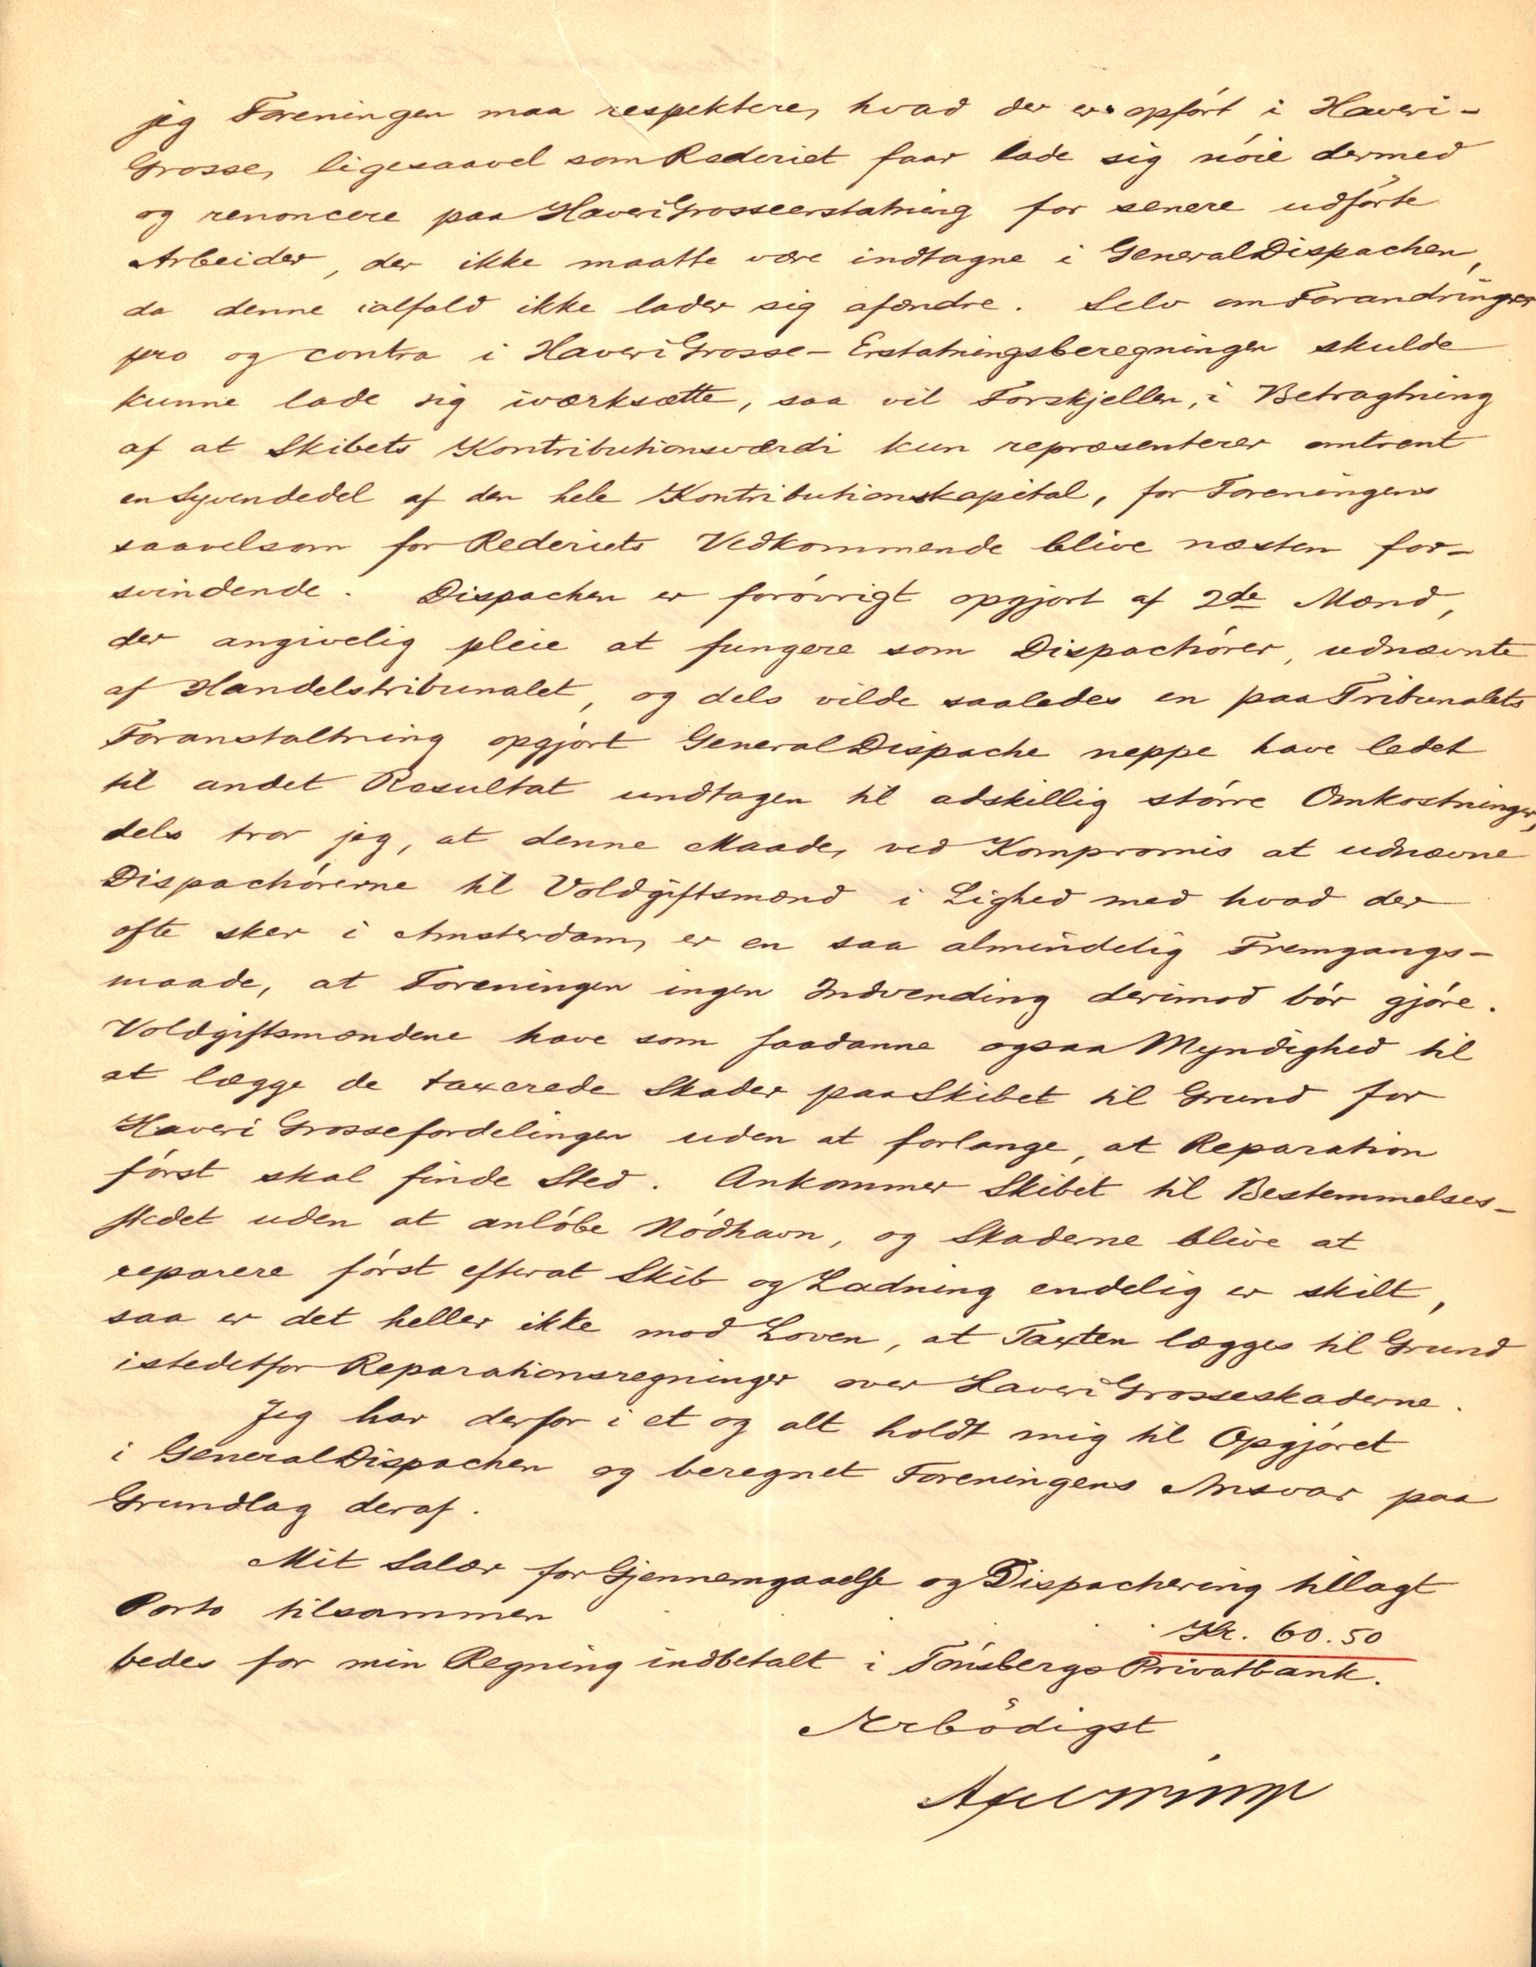 jeg Foreningen maa respektere, hvad der er opført i Haveri-
Grosse, ligesaavel som Rederiet faar lade sig nöie dermed
og renoncere paa HaveriGrosseerstatning for senere udførte
Arbeider, der ikke maatte være indtagne i GeneralDispachen,
da denne ialfald ikke lader sig afændre. Selv om Forandringer
pro og contra i HaveriGrosse-Erstatningsberegningen skulde
kunne lade sig iværksætte, saa vil Forskjellen, i Betragtning
af at Skibets Kontributionsværdi kun repræsenterer omtrent
en Syvendedel af den hele Kontributionskapital, for Foreningens
saavelsom for Rederiets Vedkommende blive næsten for-
svindende. Dispachen er forövrigt opgjort af 2de Mænd,
der angivelig pleie at fungere som Dispachörer, udnævnte
af Handelstribunalet, og dels vilde saaledes en paa Tribunalets
Foranstaltning opgjört GeneralDispache neppe have ledet
til andet Resultat undtagen til adskillig större Omkostninger,
dels tror jeg, at denne Maade, ved Kompromis at udnævne
Dispachörerne til Voldgiftsmænd i Lighed med hvad der
ofte sker i Amsterdam, er en saa almindelig Fremgangs-
maade, at Foreningen ingen Indvending derimod bör gjöre.
Voldgiftsmændene have som saadanne ogsaa Myndighed til
at lægge de taxerede Skader paa Skibet til Grund for
HaveriGrossefordelingen uden at forlange, at Reparation
först skal finde Sted. Ankommer Skibet til Bestemmelses-
stedet uden at anlöbe Nödhavn, og Skaderne blive at
reparere först efterat Skib og Ladning endelig er skilt,
saa er det heller ikke mod Loven, at Taxten lægges til Grund
istedetfor Reparationsregninger over HaveriGrosseskaderne.
Jeg har derfor i et og alt holdt mig til Opgjöret
i GeneralDispachen og beregnet Foreningens Ansvar paa
Grundlag deraf.
Mit Salær for Gjennemgaaelse og Dispachering tillagt
Porto tilsammen
Kr. 60.50
bedes for min Regning indbetalt i Tönsbergs Privatbank.
Ærbödigst
Axel